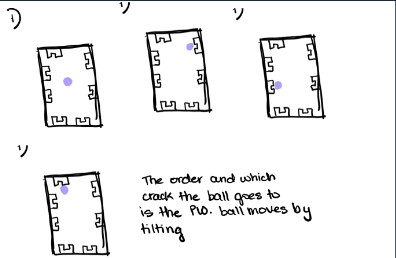 1)
1)
1)
1)
The order and which
crack the ball goes to
is the PW. ball moves by
tilting